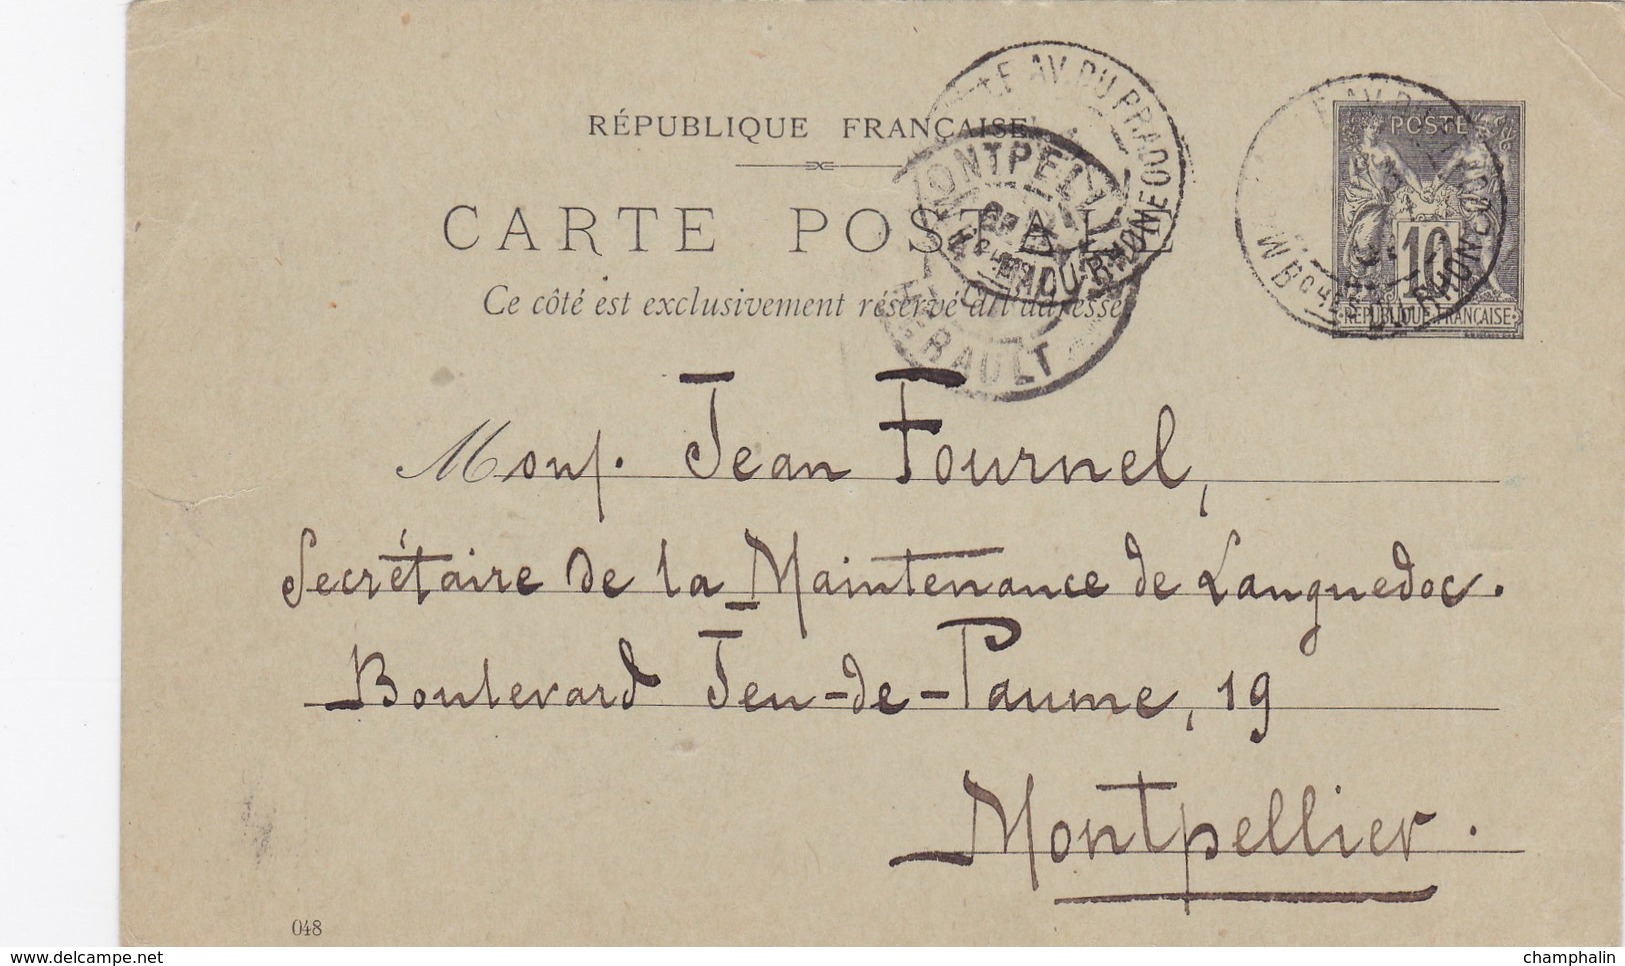 RÉPUBLIQUE FRANÇAISE
CARTE POSTALE
Ce côté est exclusivement réservé à l'adresse
POSTE
10
RÉPUBLIQUE FRANÇAISE
AV. DU PRADO
DU-RHONE
MONTPELLIER
HERAULT
Mons. Jean Fournel,
Secrétaire de la Maintenance de Languedoc.
Boulevard Jeu-de-Paume, 19
Montpellier.
048
www.delcampe.net
champhalin